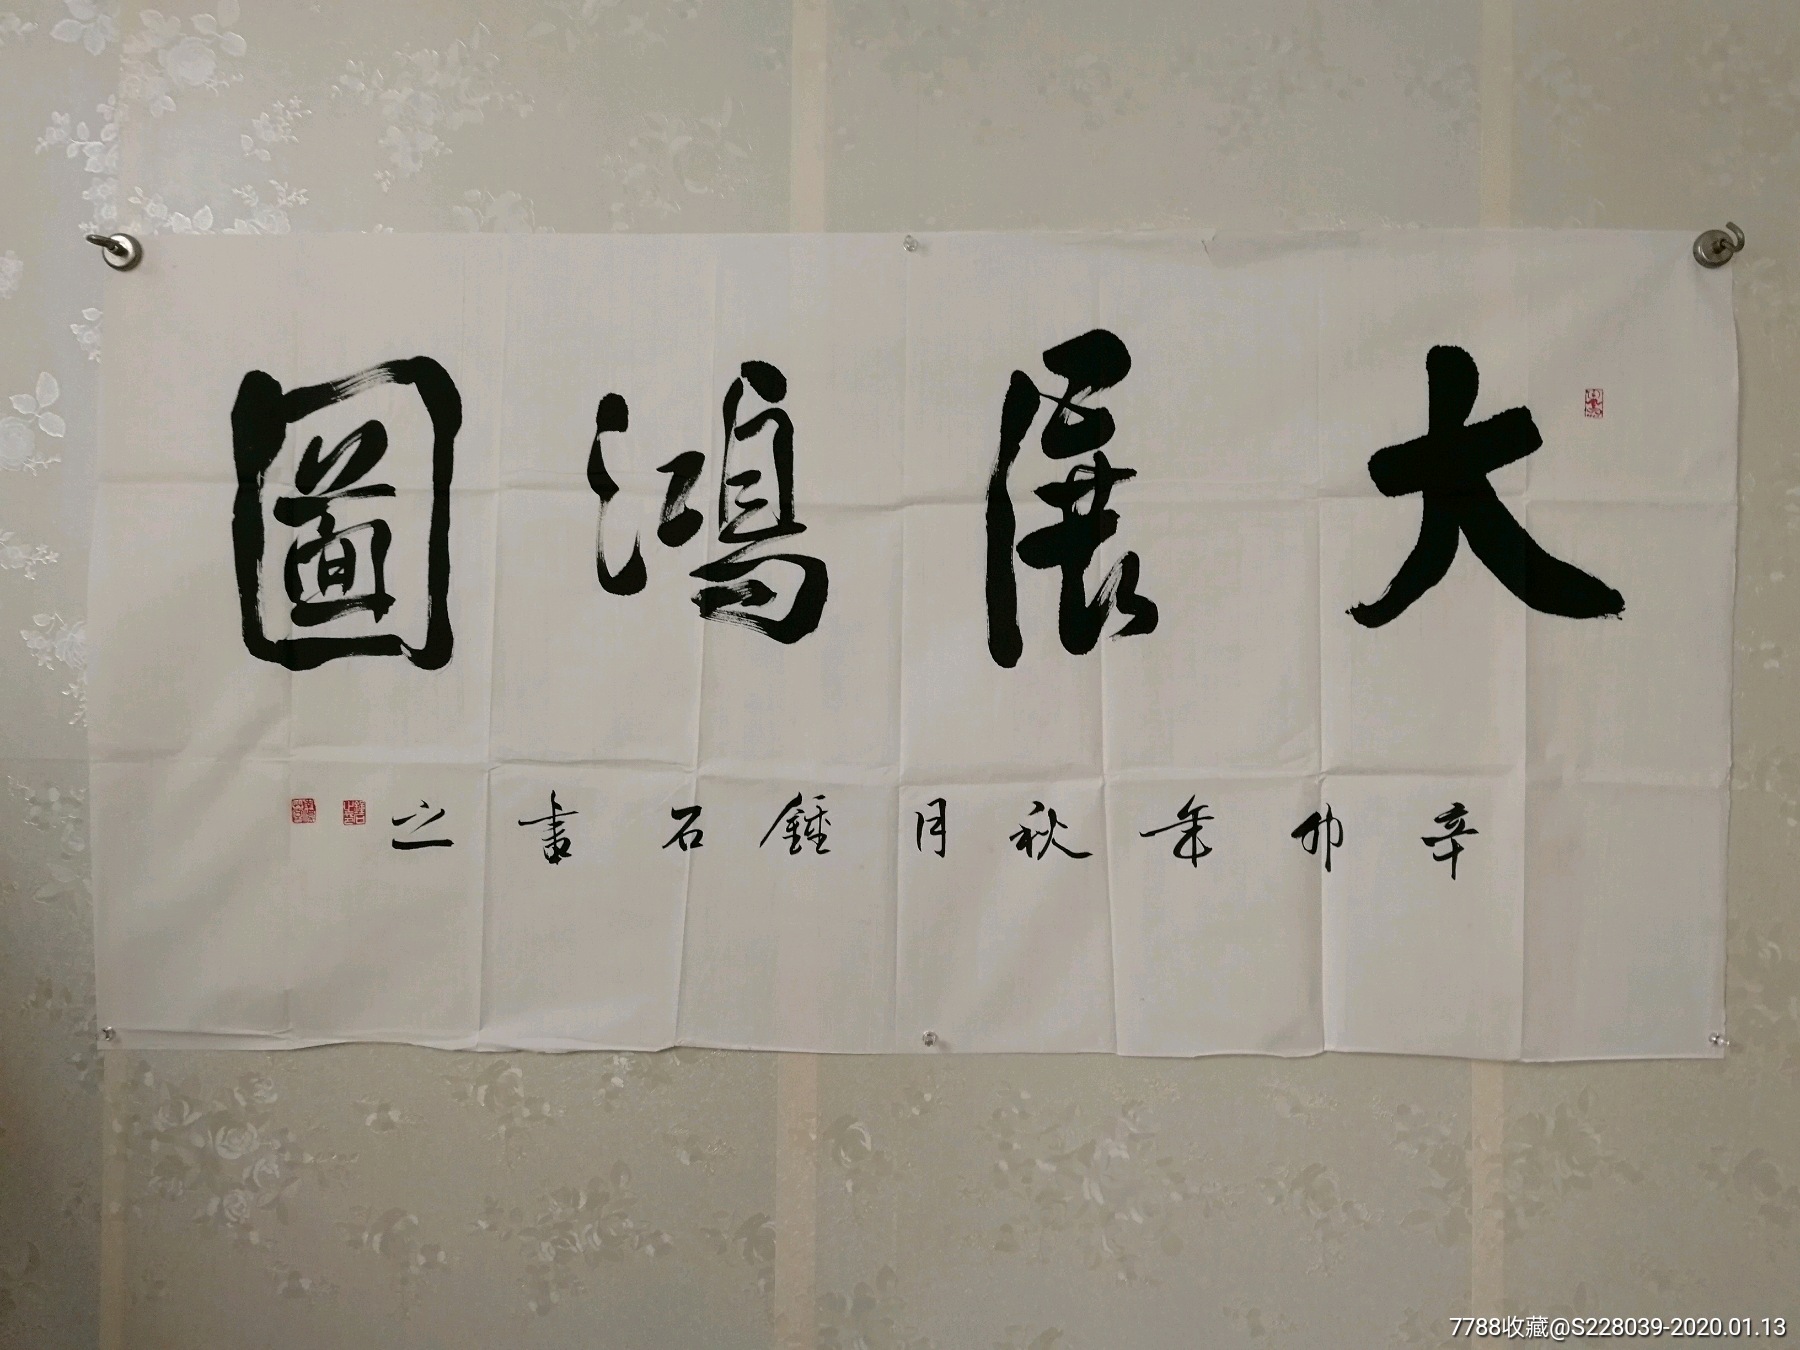 大展鴻圖
辛卯年秋月鍾石書之
7788收藏@S228039-2020.01.13